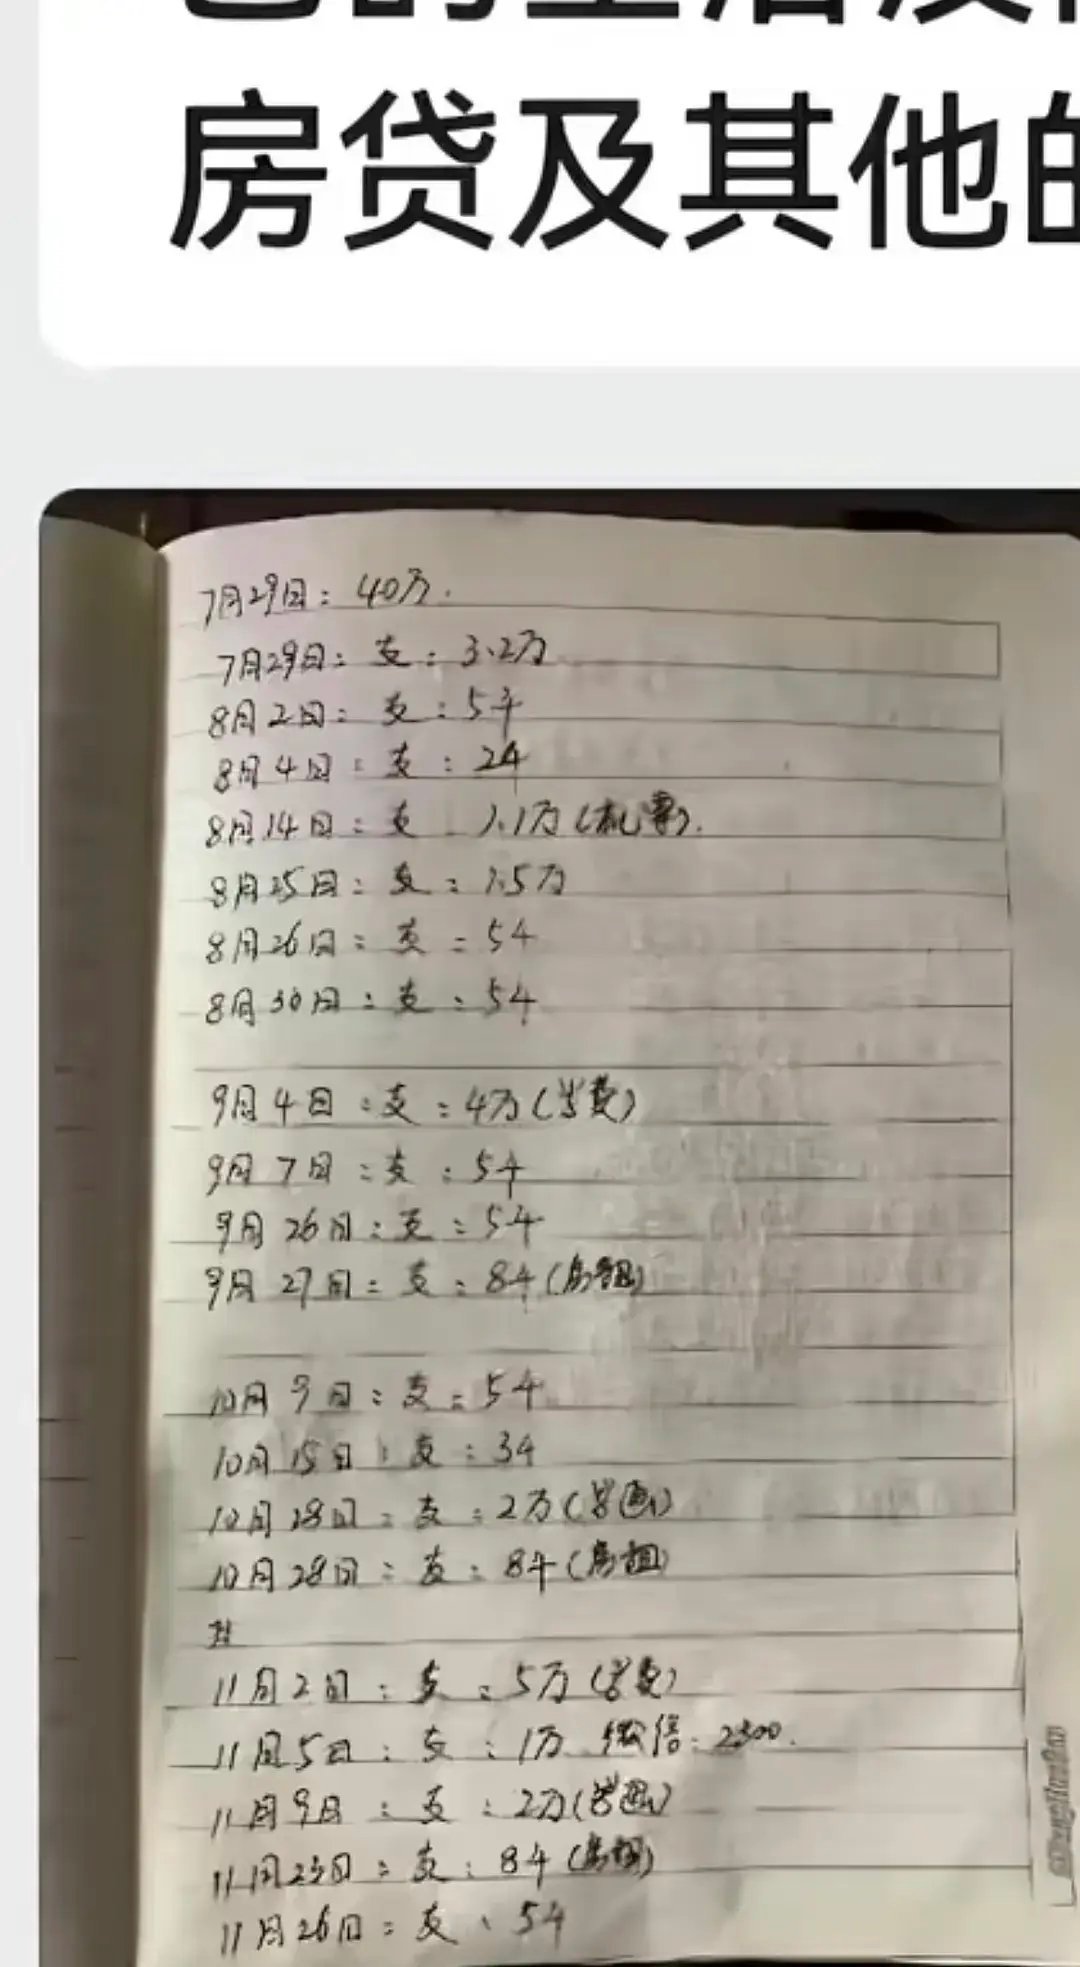 房贷及其他的
7月29日：40万.
7月29日：支：3.2万
8月2日：支：5千
8月4日：支：2千
8月14日：支 1.1万(机票).
8月25日：支：1.5万
8月26日：支：5千
8月30日：支：5千
9月4日：支：4万(学费)
9月7日：支：5千
9月26日：支：5千
9月27日：支：8千(房租)
10月9日：支：5千
10月15日：支：3千
10月28日：支：2万(学画)
10月28日：支：8千(房租)
11月2日：支：5万(学费)
11月5日：支：1万 微信：2300.
11月9日：支：2万(学画)
11月23日：支：8千(房租)
11月26日：支、5千